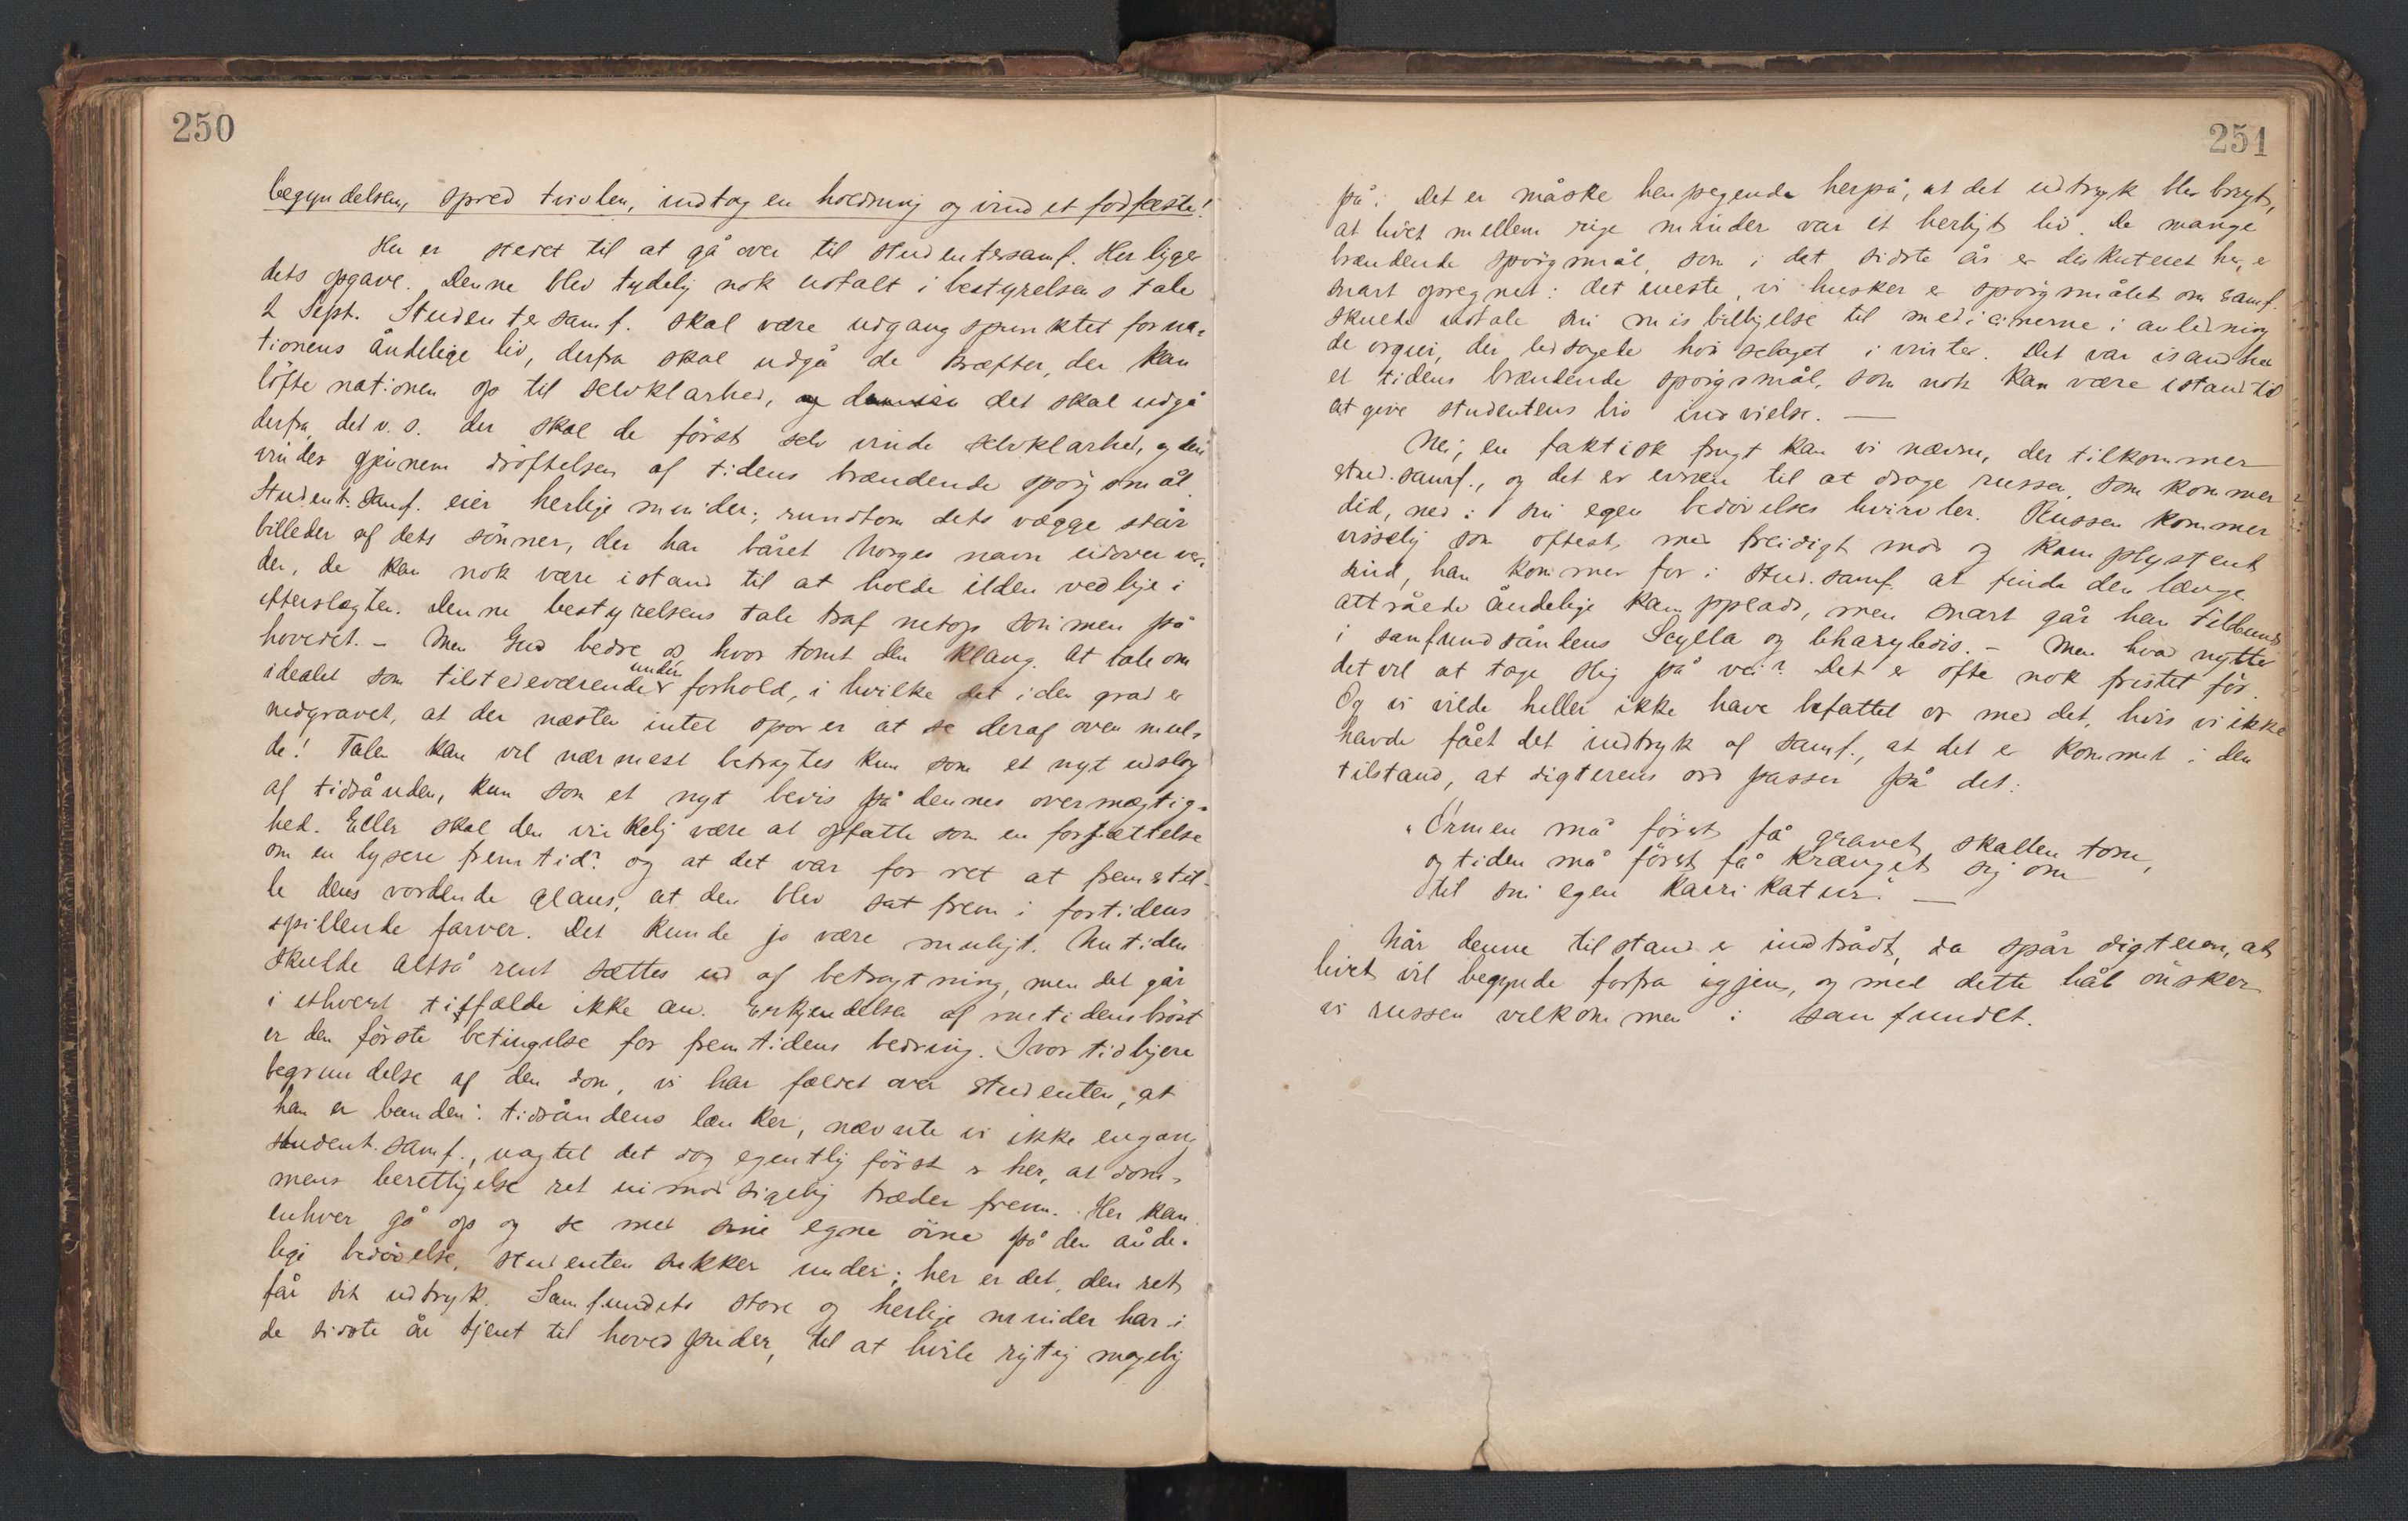 250
begyndelsen, spred tvivlen, indtag en holdning og vind et fodfæste!
Her er stedet til at gå over til studentersamf. Her ligger
dets opgave. Denne blev tydelig nok udtalt i bestyrelsens tale
2 Sept. Studentersamf. skal være udgangspunktet for na-
tionens åndelige liv, derfra skal udgå de kræfter, der kan
löfte nationen op til selvklarhed, og det skal udgå
derfra, det v. s. der skal de först selv vinde selvklarhed, og den
vindes gjennem dröftelsen af tidens brændende spörgsmål.
Student. Samf. eier herlige minder; rundtom dets vægge står
billeder af dets sönner, der har båret Norges navn udover ver-
den, de kan nok være istand til at holde ilden vedlige i
efterslægten. Denne bestyrelsens tale traf netop sömmen på
hovedet. – Men Gud bedre os hvor tomt den klang. At tale om
idealet som tilstedeværende under forhold, i hvilke det i den grad er
nedgravet, at der næsten intet spor er at se deraf oven mul-
de! Talen kan vel nærmest betragtes kun som et nyt udslag
af tidsånden, kun som et nyt bevis på dennes overmægtig-
hed. Eller skal den virkelig være at opfatte som en forjættelse
om en lysere fremtid? og at det var for ret at fremstil-
le dens vordende glans, at den blev sat frem i fortidens
spillende farver. Det kunde jo være muligt. Nutiden
skulde altså rent sættes ud af betragtning, men det går
i ethvert tilfælde ikke an. Erkjendelsen af nutidens bröst
er den förste betingelse for fremtidens bedring. I vor tidligere
begrundelse af den dom, vi har fældet over studenten, at
han er bunden i tidsåndens lænker, nævnte vi ikke engang
student. samf., uagtet det dog egentlig först er her, at dom-
mens berettigelse ret uimodsigelig træder frem. Her kan
enhver gå op og se med sine egne öine på den ånde-
lige bedövelse, studenten sukker under; her er det, den ret
får sit udtryk. Samfundets store og herlige minder har i
de sidste år tjent til hovedpuder, til at hvile rigtig magelig
251
på. Det er måske henpegende herpå, at det udtryk blev brugt,
at livet mellem rige minder var et herligt liv. De mange
brændende spörgsmål, som i det sidste år er diskuteret her, er
snart opregnet: det eneste, vi husker er spörgsmålet om Samf.
skulde udtale sin misbilligelse til medicinerne i anledning
de orgier, der ledsagede hin selaget i vinter. Det var isandhed
et tidens brændende spörgsmål, som nok kan være istand til
at give studentens liv indvielse. —
Nei, en faktisk frugt kan vi nævne, der tilkommer
stud. samf., og det er evnen til at drage russen, som kommer
did, ned i sin egen bedövelses hvirvler. Russen kommer
visselig som oftest, med freidigt mod og kamplystent
sind, han kommer for i stud. samf. at finde den længe
attråede åndelige kampplads, men snart går han tilbunds
i samfundsåndens Scylla og Charybdis. – Men hvad nytter
det vel at tage slig på vei? Det er ofte nok fristet för.
Og vi vilde heller ikke have befattet os med det, hvis vi ikke
havde fået det indtryk af Samf., at det er kommet i den
tilstand, at digterens ord passer på det:
„Ormen må först få gravet skallen tom,
og tiden må först få krænget sig om
til sin egen karrikatur." —
Når denne tilstand er indtrådt, da spår digteren, at
livet vil begynde forfra igjen, og med dette håb önsker
vi russen velkommen i samfundet.